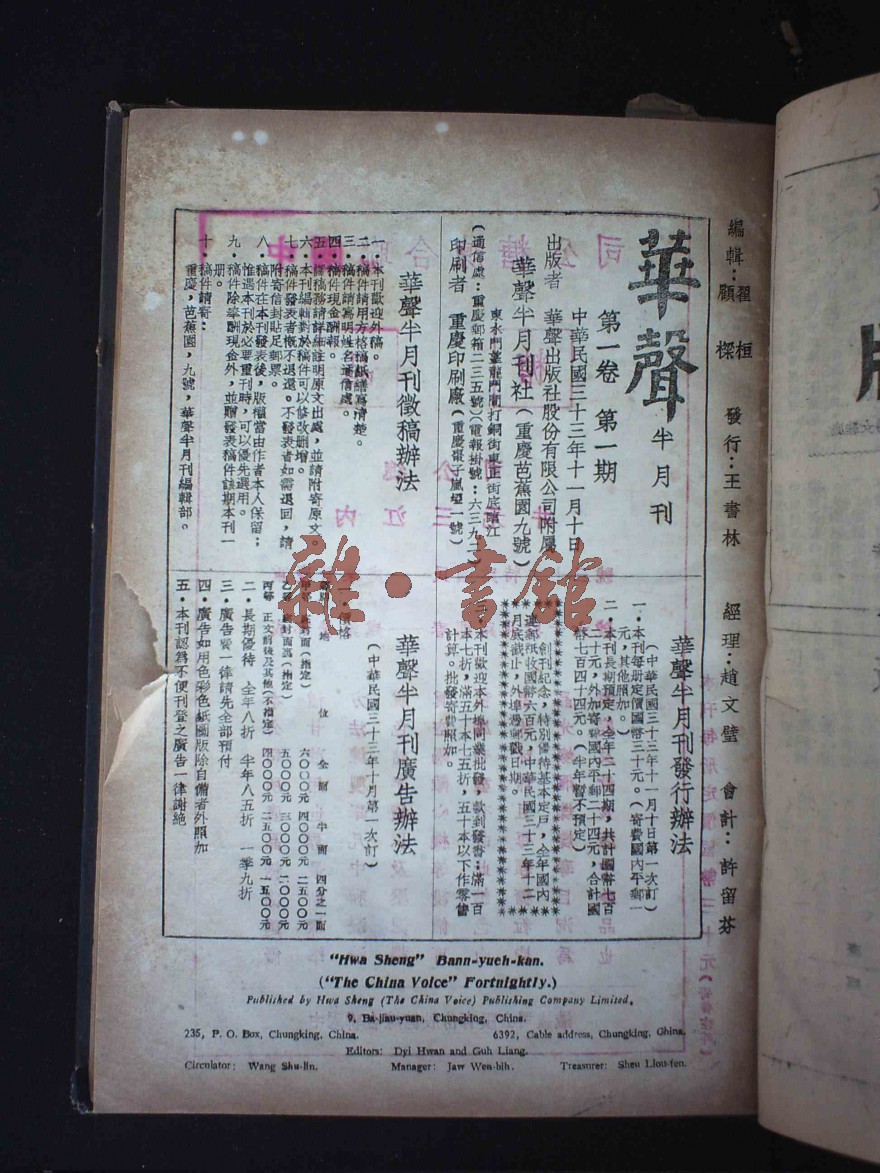 編輯：翟桓 顧樑 發行：王書林 經理：趙文璧 會計：許留芬
華聲半月刊
第一卷 第一期
中華民國三十三年十一月十日
出版者 華聲出版社股份有限公司附屬
華聲半月刊社（重慶芭蕉園九號）
（通信處：重慶郵箱二三五號）（電報掛號：六三九二）
印刷者 重慶印刷廠（重慶棗子嵐埡一號）
華聲半月刊徵稿辦法
一．本刊歡迎外稿。
二．稿件請用方格稿紙繕寫清楚。
三．稿件請寫明姓名通信處。
四．稿件現金酬報。
五．譯稿務請詳細註明原文出處，並請附寄原文。
六．本刊編輯對於稿件可以修改刪增。
七．稿件發表者概不退還。不發表者如需退回，請
附寄信封貼足郵票。
八．稿件在本刊發表後，版權當由作者本人保留；
惟遇本刊於必要重刊時，可以優先選用。
九．稿件除奉酬現金外，並贈發表稿件該期本刊一
册。
十．稿件請寄：
重慶，芭蕉園，九號，華聲半月刊編輯部。
華聲半月刊發行辦法
（中華民國三十三年十一月十日第一次訂）
一．本刊每册定價國幣三十元。（寄費國內平郵一
元，其他照加。）
二．本刊長期預定，全年二十四期，共計國幣七百
二十元，外加寄費國內平郵二十四元，合計國
幣七百四十四元。（半年暫不預定）
創刊紀念，特別優待基本定戶，全年國內
連郵祇收國幣六百元，中華民國三十三年十二
月底截止，外埠憑郵戳日期。
三．本刊歡迎本外埠同業批發，款到發書：滿一百
本七折，滿五十本七五折，五十本以下作零售
計算。批發寄費照加。
華聲半月刊廣告辦法
（中華民國三十三年十月第一次訂）
一．價格
地位 全面 半面 四分之一面
甲等 封面（指定） 六0000元 四000元 二五00元
乙等 封面裏（指定） 五000元 三000元 二000元
丙等 正文前後及其他（不指定） 四000元 二五00元 一五00元
二．長期優待 全年八折 半年八五折 一季九折
三．廣告費一律請先全部預付
四．廣告如用色彩色紙圖版除自備者外照加
五．本刊認為不便刊登之廣告一律謝絕
雜·書館
"Hwa Sheng" Bann-yueh-kan.
("The China Voice" Fortnightly.)
Published by Hwa Sheng (The China Voice) Publishing Company Limited,
9, Ba-jiau-yuan, Chungking, China.
235, P. O. Box, Chungking, China. 6392, Cable address, Chungking, China.
Editors: Dyi Hwan and Guh Liang.
Circulator: Wang Shu-lin. Manager: Jaw Wen-bih. Treasurer: Sheu Liou-fen.